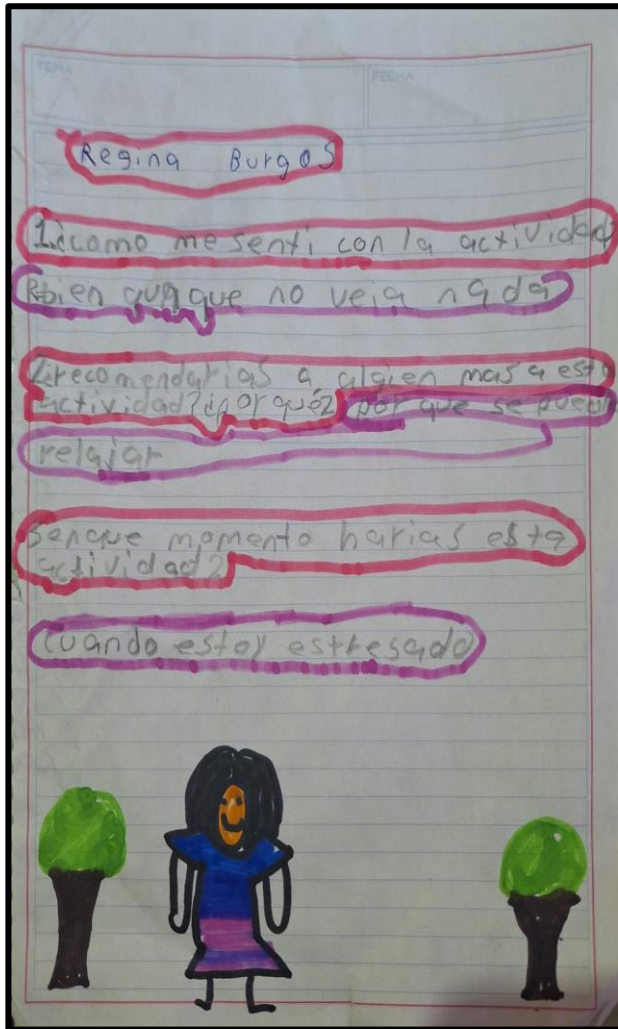 TEMA FECHA
Regina Burgos
1.¿como me senti con la actividad
R=bien aunque no veia nada
2.¿recomendarias a algien mas a esta
actividad?¿por qué? por que se puede
relajar
3en que momento harias esta
actividad?
cuando estoy estresado